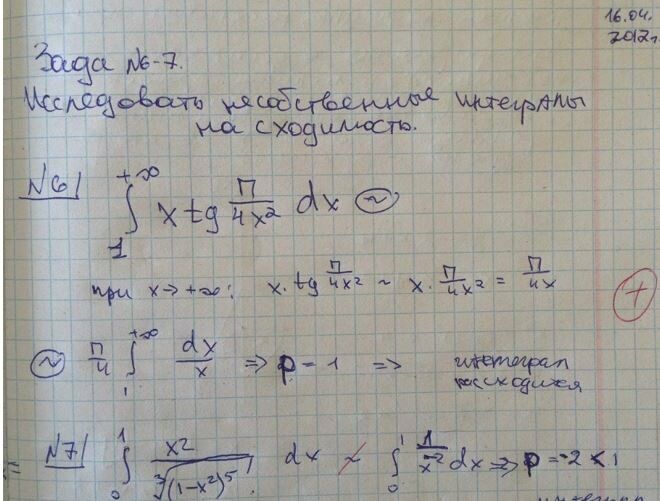 16.04.
2012г.
Зада №6-7.
Исследовать несобственные интегралы
на сходимость.
№6| ∫₁^{+∞} x tg П/4x² dx ~
при x→+∞: x·tg П/4x² ~ x·П/4x² = П/4x
+
~ П/4 ∫₁^{+∞} dx/x ⇒ p=1 ⇒ интеграл
расходится
№7| ∫₀¹ x²/∛(1-x²)⁵ dx ~ ∫₀¹ 1/x⁻² dx ⇒ p=-2<1
интеграл